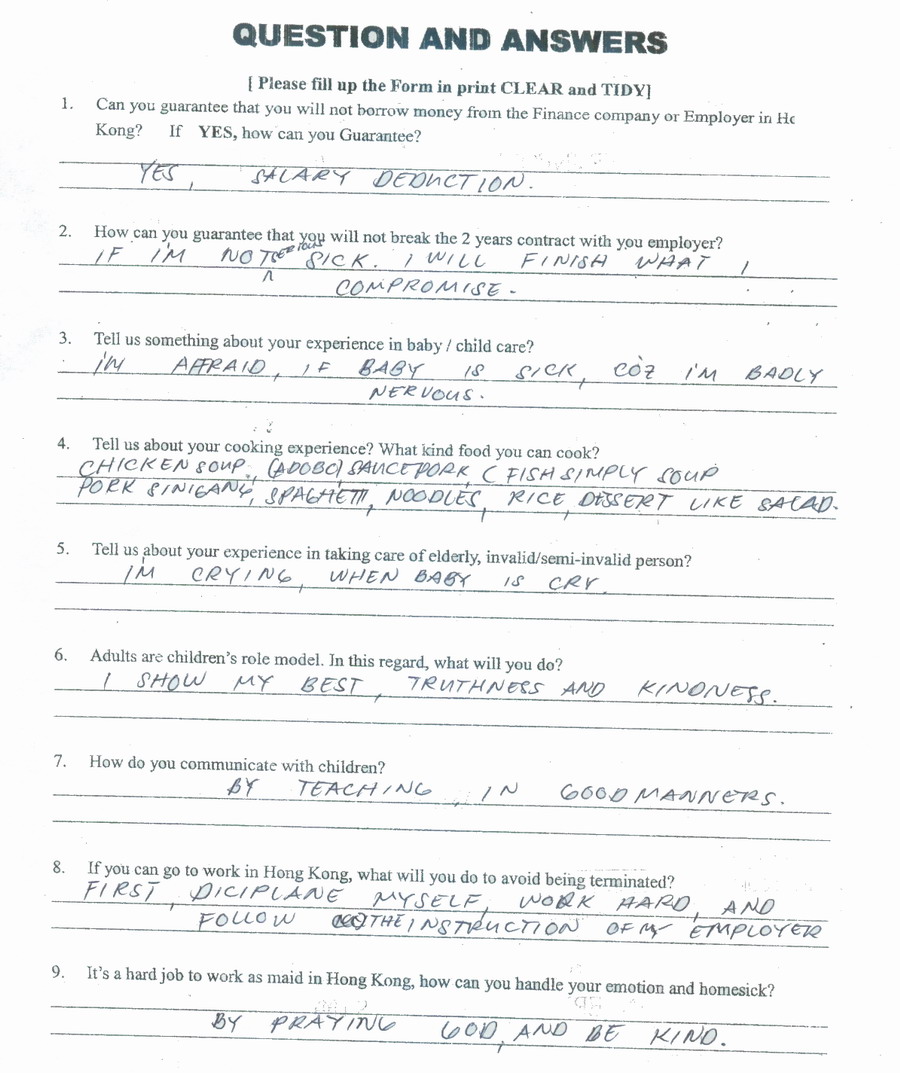 QUESTION AND ANSWERS
[ Please fill up the Form in print CLEAR and TIDY]
1. Can you guarantee that you will not borrow money from the Finance company or Employer in Ho
Kong? If YES, how can you Guarantee?
YES, SALARY DEDUCTION.
2. How can you guarantee that you will not break the 2 years contract with you employer?
IF I'M NOT SERIOUS SICK. I WILL FINISH WHAT I
COMPROMISE.
3. Tell us something about your experience in baby / child care?
I'M AFFRAID, IF BABY IS SICK, COZ I'M BADLY
NERVOUS.
4. Tell us about your cooking experience? What kind food you can cook?
CHICKEN SOUP, (ADOBO) SAUCE PORK, ( FISH SIMPLY SOUP
PORK SINIGANG, SPAGHETTI, NOODLES, RICE, DESSERT LIKE SALAD.
5. Tell us about your experience in taking care of elderly, invalid/semi-invalid person?
I'M CRYING, WHEN BABY IS CRY.
6. Adults are children's role model. In this regard, what will you do?
I SHOW MY BEST, TRUTHNESS AND KINDNESS.
7. How do you communicate with children?
BY TEACHING, IN GOOD MANNERS.
8. If you can go to work in Hong Kong, what will you do to avoid being terminated?
FIRST, DICIPLANE MYSELF, WORK HARD, AND
FOLLOW THE INSTRUCTION OF MY EMPLOYER
9. It's a hard job to work as maid in Hong Kong, how can you handle your emotion and homesick?
BY PRAYING GOD, AND BE KIND.